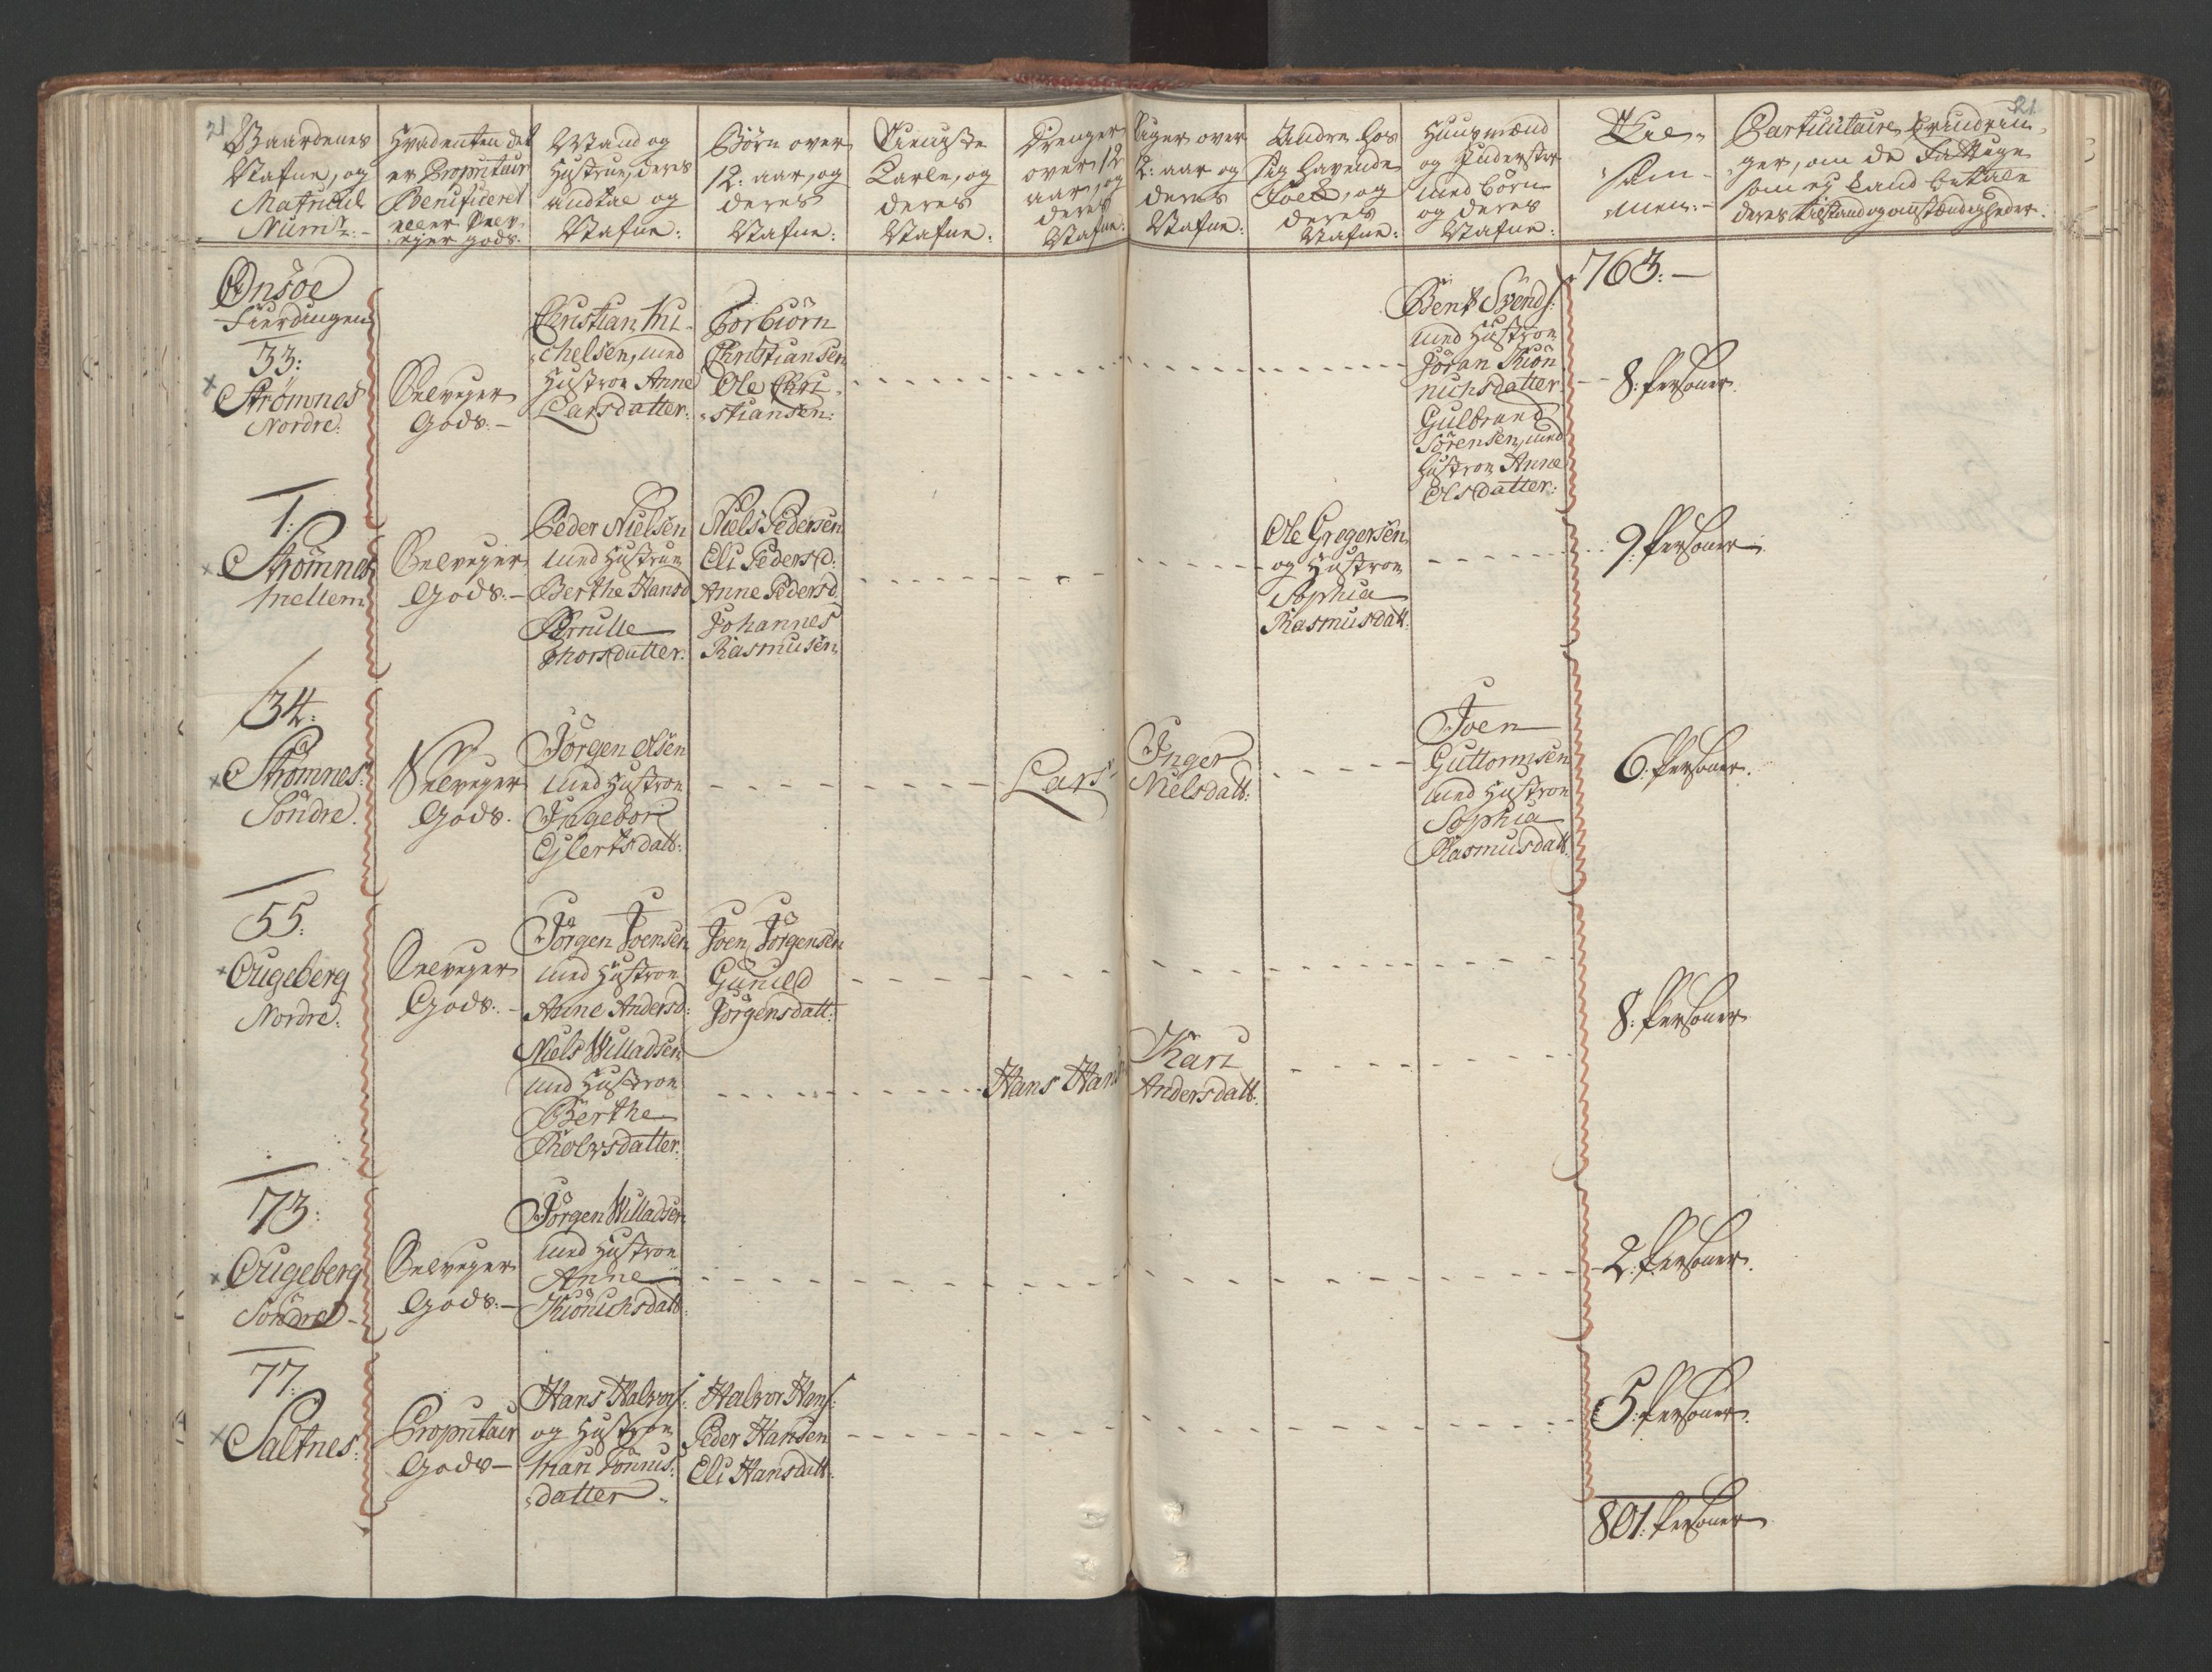 21
21
Gaardenes
Nafne, og
Matricul
Num:
Hvadenten det
er Propritair
Benificeret
eller Selv-
ejer gods.
Mand og
Hustrue, deres
Andtal og
Nafne:
Børn over
12: aar, og
deres
Nafne:
Tieniste
Karle, og
deres
Nafne:
Drenger
over 12
aar, og
deres
Nafne:
Piger over
12: aar og
deres
Nafne:
Andre hos
sig havende
Folk, og
deres
Nafne:
Huusmænd
og Inderster
med børn
og deres
Nafne:
Til-
sam-
men:-
Particulaire Erindrin-
ger, om de Fattige
som ej kand betale
deres tilstand og omstændigheder.
Onsøe
Fierdingen
763:-
33:
Strømnes
Nordre:
Selvejer
Gods.-
Christian Mi-
chelsen, med
Hustroe Anne
Larsdatter:
Torbiörn
Christiansen
Ole Chri-
stiansen:
Bent Svends:
med Hustroe
Jöran Kiön
nichsdatter
Gulbrand
Sörensen, med
Hustroe Anne
Olsdatter:
8: Personer.
1:
Strömnes
mellem
Selvejer
Gods.-
Peder Nielsen
med Hustrue
Berthe Hansd
Thorsdatter:
Niels Pedersen
Eli Pedersd:
Anne Pedersd
Johannes
Rasmusen
Ole Gregersen
og Hustroe
Sophia
Rasmusdatt.
9: Personer.
34:
Strömnes:
Söndre.
Selvejer
Gods.
Jörgen Olsen
med Hustroe
Ingebor
Ejlertsdatt:
Lars
Inger
Nielsdatt:
Joen
Guttormsen
med Hustroe
Sophia
Rasmusdatt.
6: Personer.
55:
Ougeberg
Nordre.
Selvejer
Gods.-
Jörgen Joensen
med Hustroe
Anne Andersd:
Joen Jörgensen
Gunild
Jörgensdatt:
8: Personer
Niels Willadsen
med Hustroe
Berthe
Rolvsdatter.
Hans Hans
Kari
Andersdatt.
73:
Ougeberg
Söndre-
Selvejer
Gods.-
Jörgen Willadsen
med Hustroe
Anne
Kiönichsdatt:
2: Personer.
77.
Saltnes:
Propritair
Gods-
Hans Halvors:
og Hustroe
Mari Tönnis:
datter.
Halvor Hans:
Peder Hansen
Eli Hansdatt:
5: Personer.
801: Personer